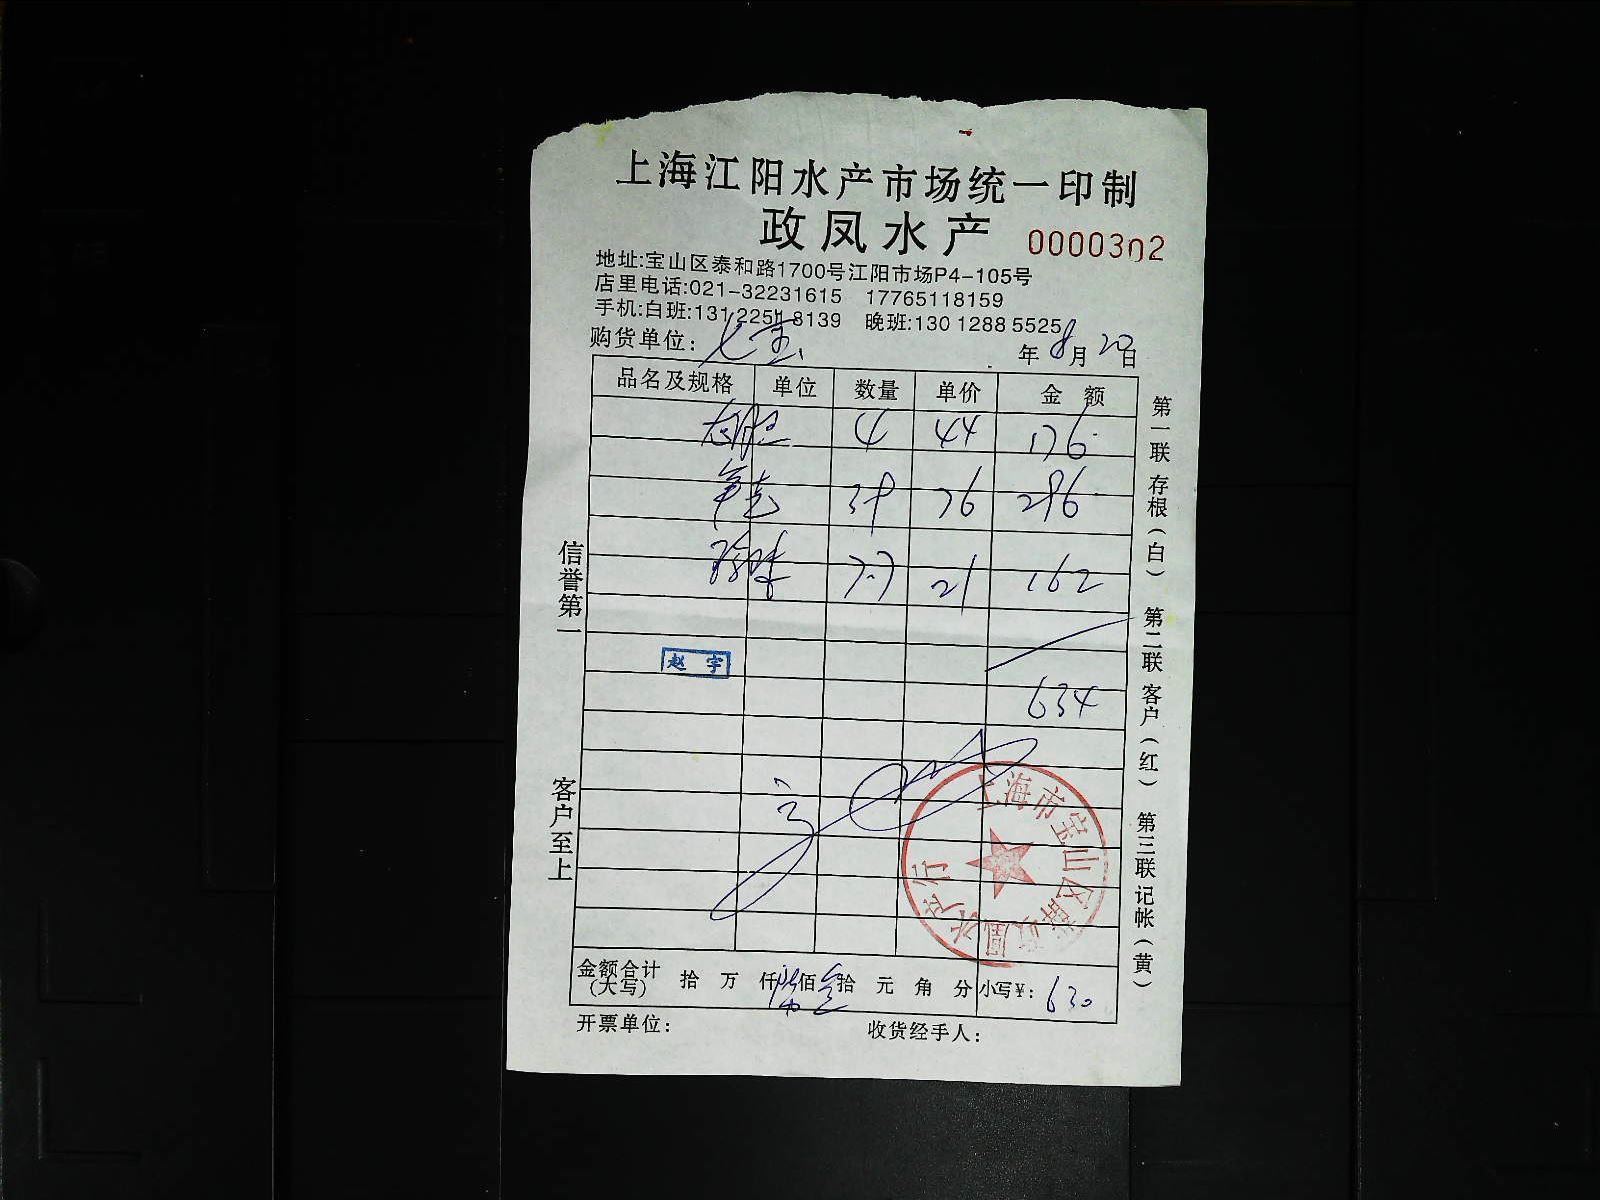 上海江阳水产市场统一印制
政凤水产 0000302
地址:宝山区泰和路1700号江阳市场P4-105号
店里电话:021-32231615 17765118159
手机:白班:131 2251 8139 晚班:130 1288 5525
购货单位: 七宝 年 8 月 20 日
品名及规格 单位 数量 单价 金 额
4 44 176
38 76 296
7.7 21 162
赵 宇
634
金额合计(大写) 拾 万 仟 佰 叁 拾 元 角 分 小写¥: 630
开票单位: 收货经手人:
信誉第一
客户至上
第一联 存根(白) 第二联 客户(红) 第三联 记帐(黄)
上海市宝山区 水产行